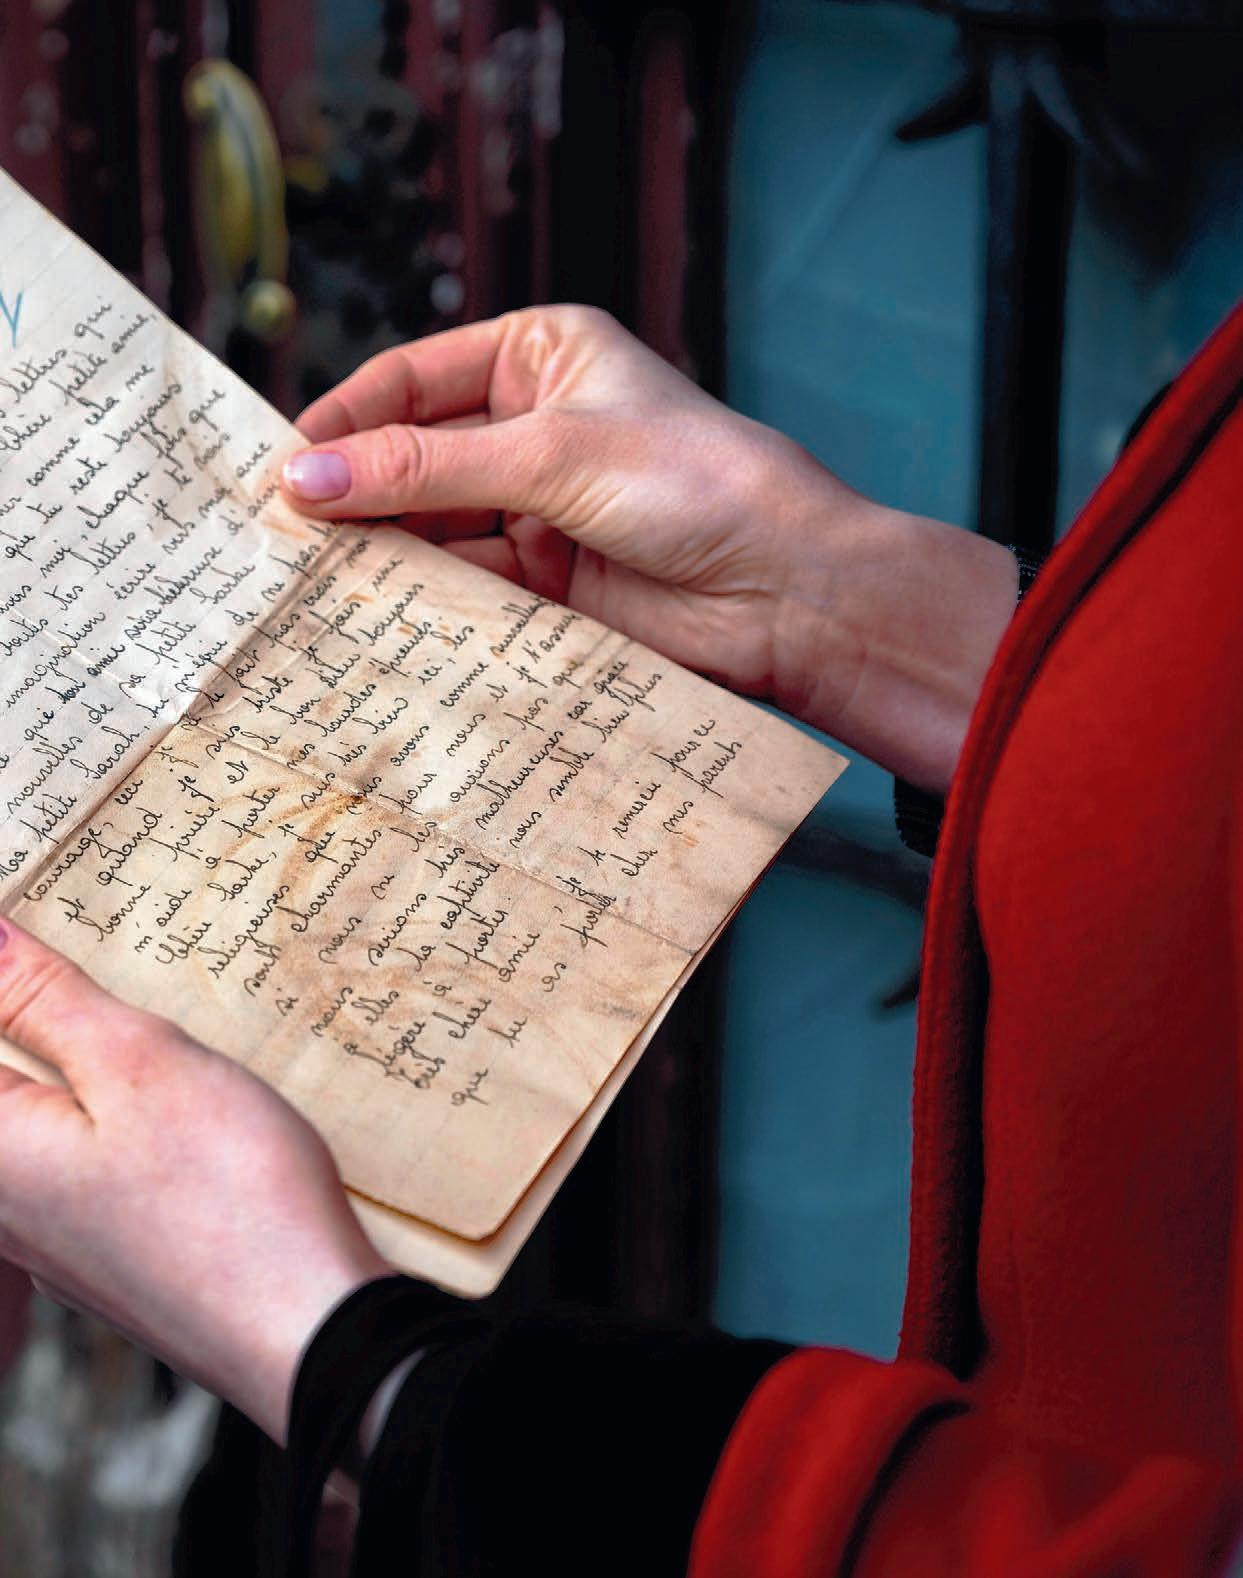 lettres qui
Chère petite amie,
comme cela me
que tu reste toujours
vers moi, chaque fois que
toutes tes lettres, je te vois
imagination écrire vers moi avec
que ton amie sera désireuse d'
nouvelles de sa petite Sarke
Ma petite Sarah, tu m'
de ne pas
courage, car je
le fait pas très
et quand je suis triste je fais une
bonne prière et le bon dieu toujours
m'aide à porter mes lourdes épreuves
Chère Sarke, je suis très bien ici, les
religieuses que nous avons comme
sont charmantes pour nous et je t'
si nous ne les avions pas que
nous serions très malheureuses car grâce
à elles la captivité nous semble bien plus
légère à porter.
Très chère amie, je te remercie pour ce
que tu as porté chez mes parents